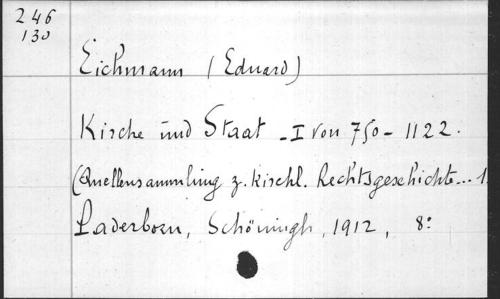 246
130
Eichmann (Eduard)
Kirche und Staat - I von 750 - 1122.
(Quellensammlung z. kirchl. Rechtsgeschichte... 1.
Paderborn, Schöningh, 1912, 8: